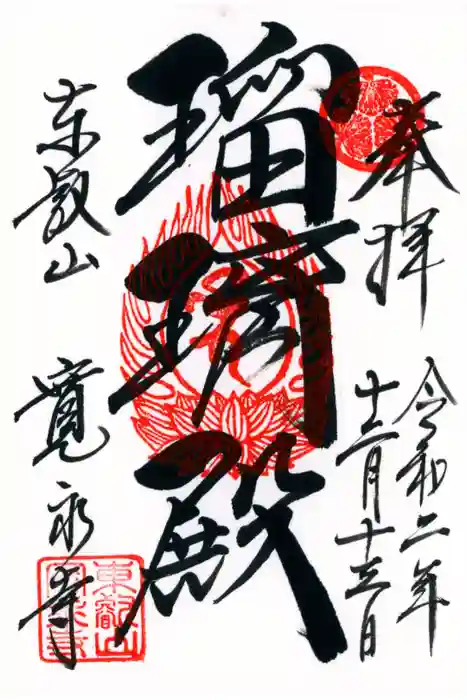 奉拝
令和二年
十二月十三日
瑠璃殿
東叡山
寛永寺
東叡山